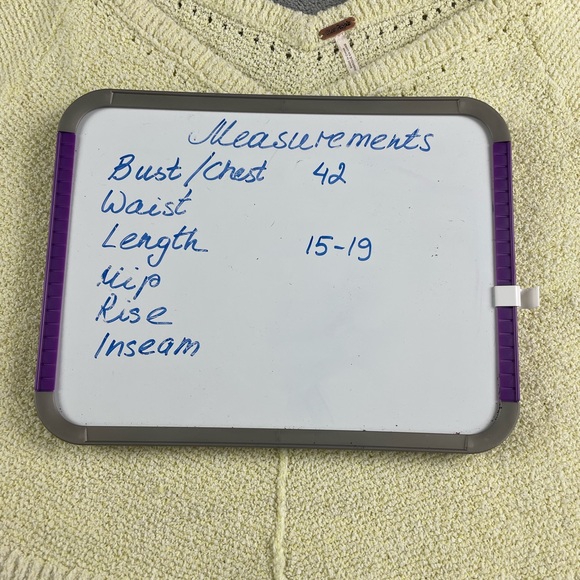 Measurements
Bust/Chest 42
Waist
Length 15-19
Hip
Rise
Inseam